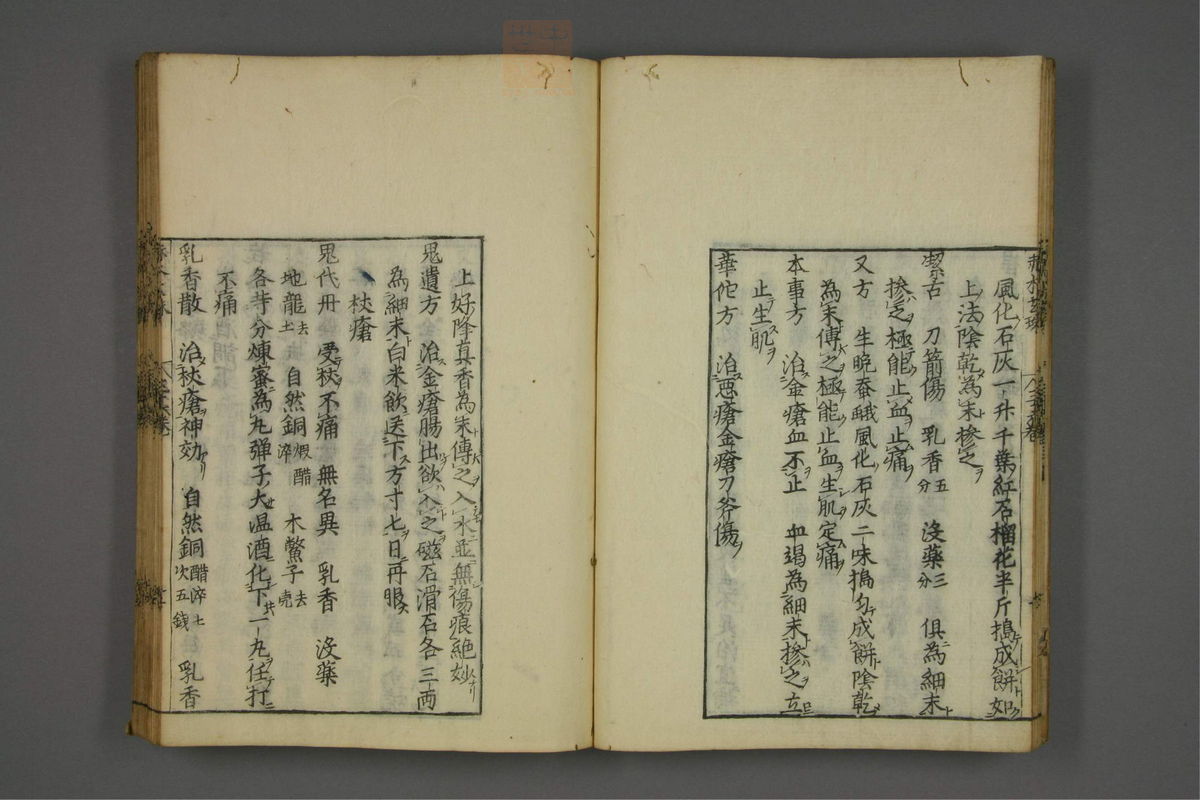 風化石灰一升千葉紅石榴花半斤搗成餅如
上法陰乾為末摻之
絜古　刀箭傷　乳香五分　没藥三分　俱為細末
摻之極能止血止痛
又方　生晩蚕蛾風化石灰二味搗匀成餅陰乾
為末傅之極能止血生肌定痛
本事方　治金瘡血不止　血竭為細末摻之立
止生肌
華佗方　治悪瘡金瘡刀斧傷
上好降真香為末傅之入水並無傷痕絶妙
鬼遺方　治金瘡腸出欲入之磁石滑石各三両
為細末白米飲送下方寸七日再服
杖瘡
鬼代丹　受杖不痛　無名異　乳香　没藥
地龍去土　自然銅煅醋淬　木鱉子去壳
各等分煉蜜為丸弾子大温酒化下一丸任打
不痛
乳香散　治杖瘡神効　自然銅醋淬七次五錢　乳香